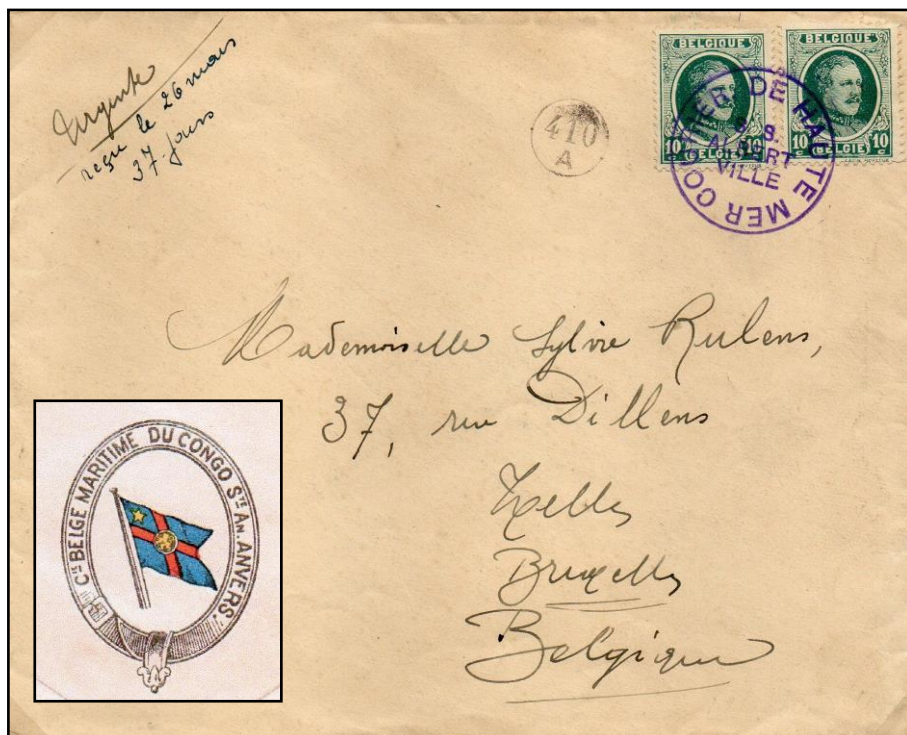 Urgente
reçu le 26 mars
37 jours
410
A
BELGIQUE
10 BELGIE 10
BELGIQUE
10 BELGIE 10
COURRIER DE HAUTE MER
S. S.
ALBERT
VILLE
Mademoiselle Sylvie Rulens,
37, rue Dillens
Ixelles
Bruxelles
Belgique
Cie BELGE MARITIME DU CONGO Sté An. ANVERS